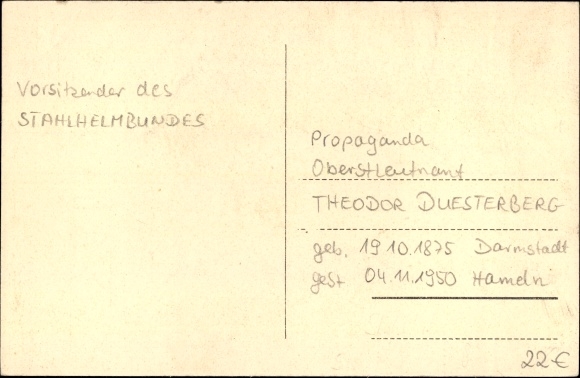 Vorsitzender des
STAHLHELMBUNDES
Propaganda
Oberstleutnant
THEODOR DUESTERBERG
geb. 19.10.1875 Darmstadt
gest 04.11.1950 Hameln
22€